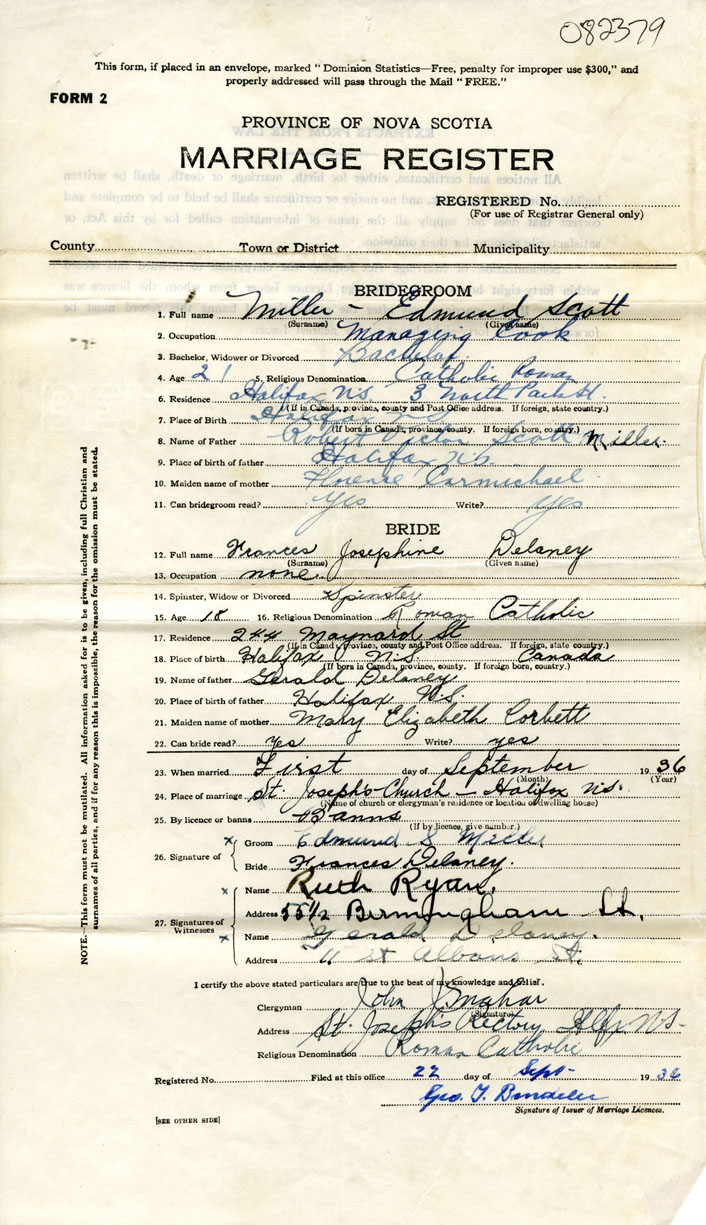 082379
This form, if placed in an envelope, marked "Dominion Statistics—Free, penalty for improper use $300," and
properly addressed will pass through the Mail "FREE."
FORM 2
PROVINCE OF NOVA SCOTIA
MARRIAGE REGISTER
REGISTERED No.
(For use of Registrar General only)
County Town or District Municipality
BRIDEGROOM
1. Full name Miller - Edmund Scott
(Surname) (Given name)
2. Occupation Managing Cook
3. Bachelor, Widower or Divorced Bachelor
4. Age 21 5. Religious Denomination Catholic Roman
6. Residence Halifax N.S. 3 North Park St.
(If in Canada, province, county and Post Office address. If foreign, state country.)
7. Place of Birth Halifax N.S.
(If born in Canada, province, county. If foreign born, country.)
8. Name of Father Robert Victor Scott Miller.
9. Place of birth of father Halifax N.S.
10. Maiden name of mother Florence Carmichael
11. Can bridegroom read? Yes Write? yes
BRIDE
12. Full name Frances Josephine Delaney
(Surname) (Given name)
13. Occupation none.
14. Spinster, Widow or Divorced Spinster
15. Age 18 16. Religious Denomination Roman Catholic
17. Residence 244 Maynard St
(If in Canada, province, county and Post Office address. If foreign, state country.)
18. Place of birth Halifax N.S. Canada
(If born in Canada, province, county. If foreign born, country.)
19. Name of father Gerald Delaney
20. Place of birth of father Halifax N.S.
21. Maiden name of mother Mary Elizabeth Corbett
22. Can bride read? yes Write? yes
23. When married First day of September 1936
(Month) (Year)
24. Place of marriage St. Joseph's Church - Halifax N.S.
(Name of church or clergyman's residence or location of dwelling house)
25. By licence or banns Banns
(If by licence, give number.)
26. Signature of
x Groom Edmund S Miller
Bride Frances Delaney.
27. Signatures of Witnesses
x Name Ruth Ryan.
Address 55 1/2 Birmingham St.
x Name Gerald Delaney.
Address 11 St Albans St.
I certify the above stated particulars are true to the best of my knowledge and belief.
Clergyman John J Mahar
(Signature)
Address St. Joseph's Rectory Hlfx N.S.
Religious Denomination Roman Catholic
Registered No. Filed at this office 22 day of Sept- 1936
Geo. T.
Signature of Issuer of Marriage Licences.
[SEE OTHER SIDE]
NOTE.—This form must not be mutilated. All information asked for is to be given, including full Christian and
surnames of all parties, and if for any reason this is impossible, the reason for the omission must be stated.